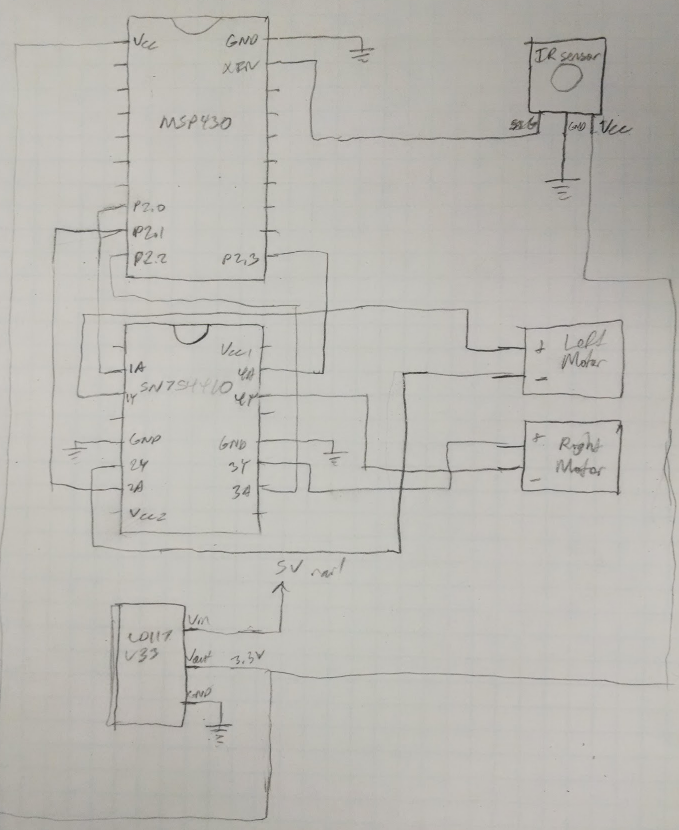 Vcc GND
XIN
MSP430
P2.0
P2.1
P2.2 P2.3
IR sensor
SIG GND Vcc
Vcc1
1A 4A
SN754410
1Y 4Y
GND GND
2Y 3Y
2A 3A
Vcc2
+ Left
Motor
-
+ Right
Motor
-
5V rail
LD117
V33
Vin
Vout 3.3V
GND